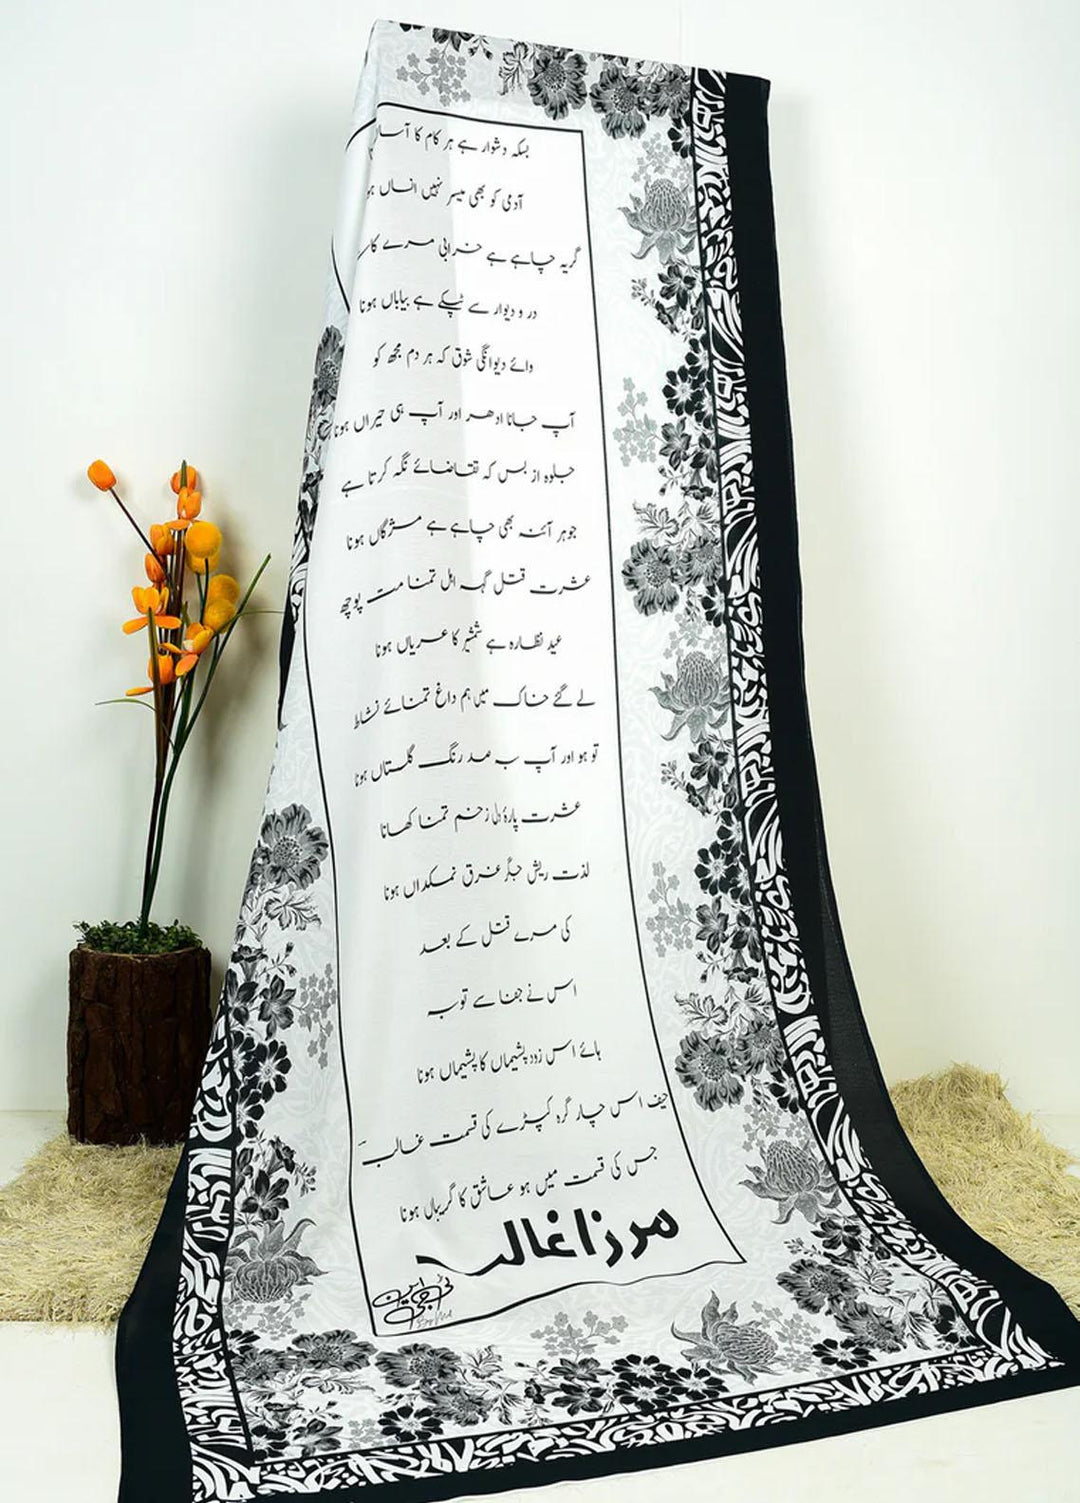 بسکہ دشوار ہے ہر کام کا آساں
آدمی کو بھی میسر نہیں انساں ہو
گریہ چاہے ہے خرابی مرے کا
در و دیوار سے ٹپکے ہے بیاباں ہونا
وائے دیوانگی شوق کہ ہر دم مجھ کو
آپ جانا ادھر اور آپ ہی حیراں ہونا
جلوہ از بس کہ تقاضائے نگہ کرتا ہے
جوہر آئنہ بھی چاہے ہے مژگاں ہونا
عشرت قتل گہہ اہل تمنا مت پوچھ
عید نظارہ ہے شمشیر کا عریاں ہونا
لے گئے خاک میں ہم داغ تمنائے نشاط
تو ہو اور آپ بہ صد رنگ گلستاں ہونا
عشرت پارۂ دل زخم تمنا کھانا
لذت ریش جگر غرق نمکداں ہونا
کی مرے قتل کے بعد
اس نے جفا سے توبہ
ہائے اس زود پشیماں کا پشیماں ہونا
حیف اس چار گرہ کپڑے کی قسمت غالب
جس کی قسمت میں ہو عاشق کا گریباں ہونا
مرزا غالب